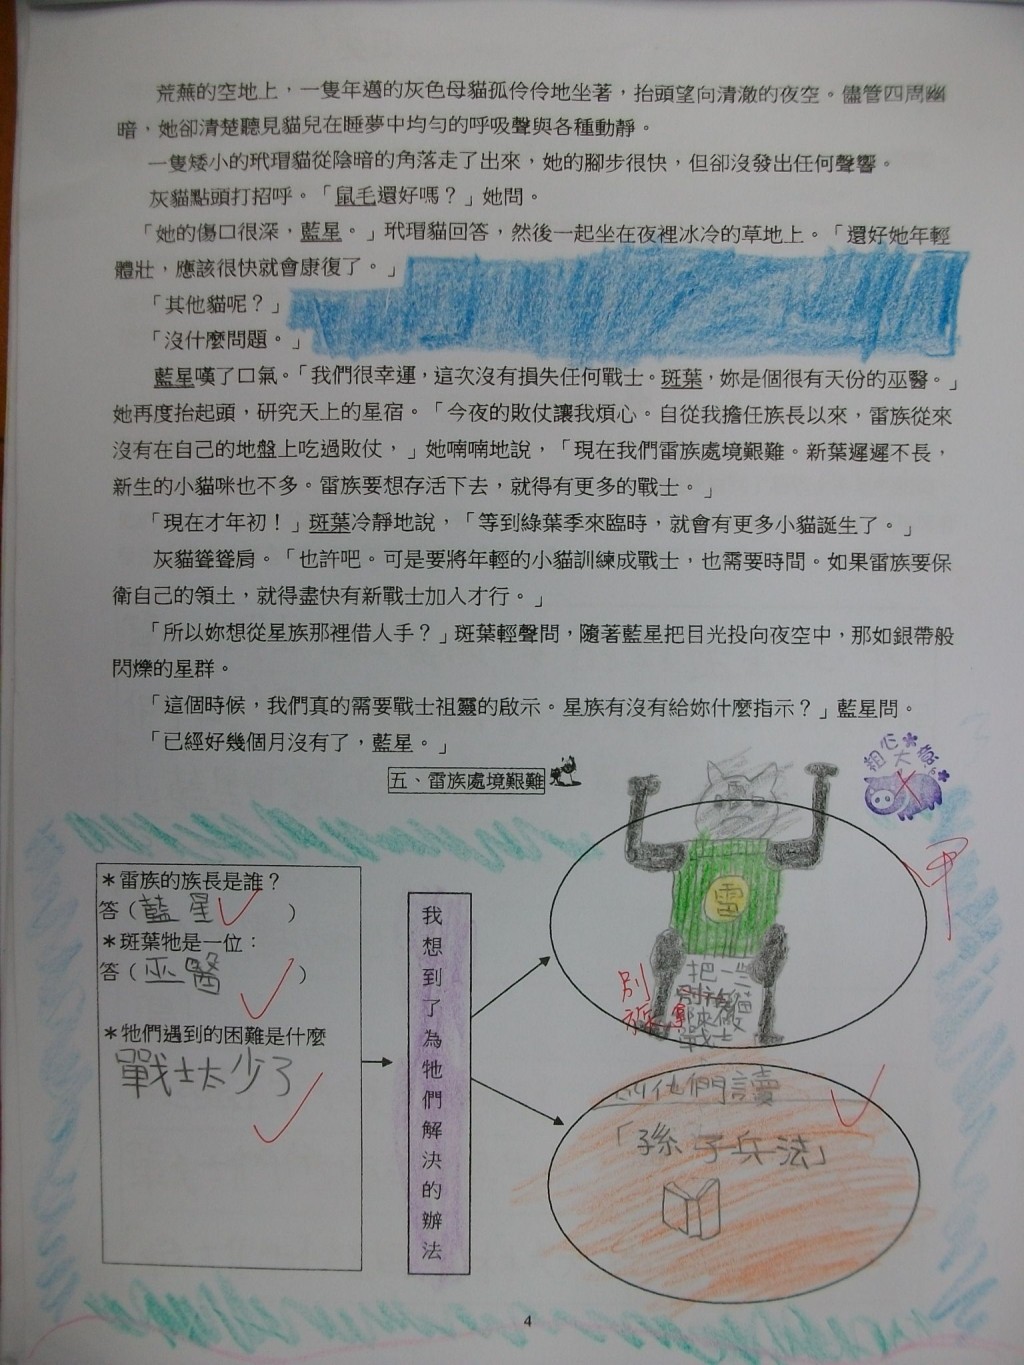 荒蕪的空地上，一隻年邁的灰色母貓孤伶伶地坐著，抬頭望向清澈的夜空。儘管四周幽
暗，她卻清楚聽見貓兒在睡夢中均勻的呼吸聲與各種動靜。
一隻矮小的玳瑁貓從陰暗的角落走了出來，她的腳步很快，但卻沒發出任何聲響。
灰貓點頭打招呼。「鼠毛還好嗎？」她問。
「她的傷口很深，藍星。」玳瑁貓回答，然後一起坐在夜裡冰冷的草地上。「還好她年輕
體壯，應該很快就會康復了。」
「其他貓呢？」
「沒什麼問題。」
藍星嘆了口氣。「我們很幸運，這次沒有損失任何戰士。斑葉，妳是個很有天份的巫醫。」
她再度抬起頭，研究天上的星宿。「今夜的敗仗讓我煩心。自從我擔任族長以來，雷族從來
沒有在自己的地盤上吃過敗仗，」她喃喃地說，「現在我們雷族處境艱難。新葉遲遲不長，
新生的小貓咪也不多。雷族要想存活下去，就得有更多的戰士。」
「現在才年初！」斑葉冷靜地說，「等到綠葉季來臨時，就會有更多小貓誕生了。」
灰貓聳聳肩。「也許吧。可是要將年輕的小貓訓練成戰士，也需要時間。如果雷族要保
衛自己的領土，就得盡快有新戰士加入才行。」
「所以妳想從星族那裡借人手？」斑葉輕聲問，隨著藍星把目光投向夜空中，那如銀帶般
閃爍的星群。
「這個時候，我們真的需要戰士祖靈的啟示。星族有沒有給妳什麼指示？」藍星問。
「已經好幾個月沒有了，藍星。」
五、雷族處境艱難
粗心大
＊雷族的族長是誰？
答（藍星）
＊斑葉牠是一位：
答（巫醫）
＊牠們遇到的困難是什麼
戰士太少了
我想到了為牠們解決的辦法
雷
甲
把一些
別族
貓
戰士
他們讀
「孫子兵法」
4